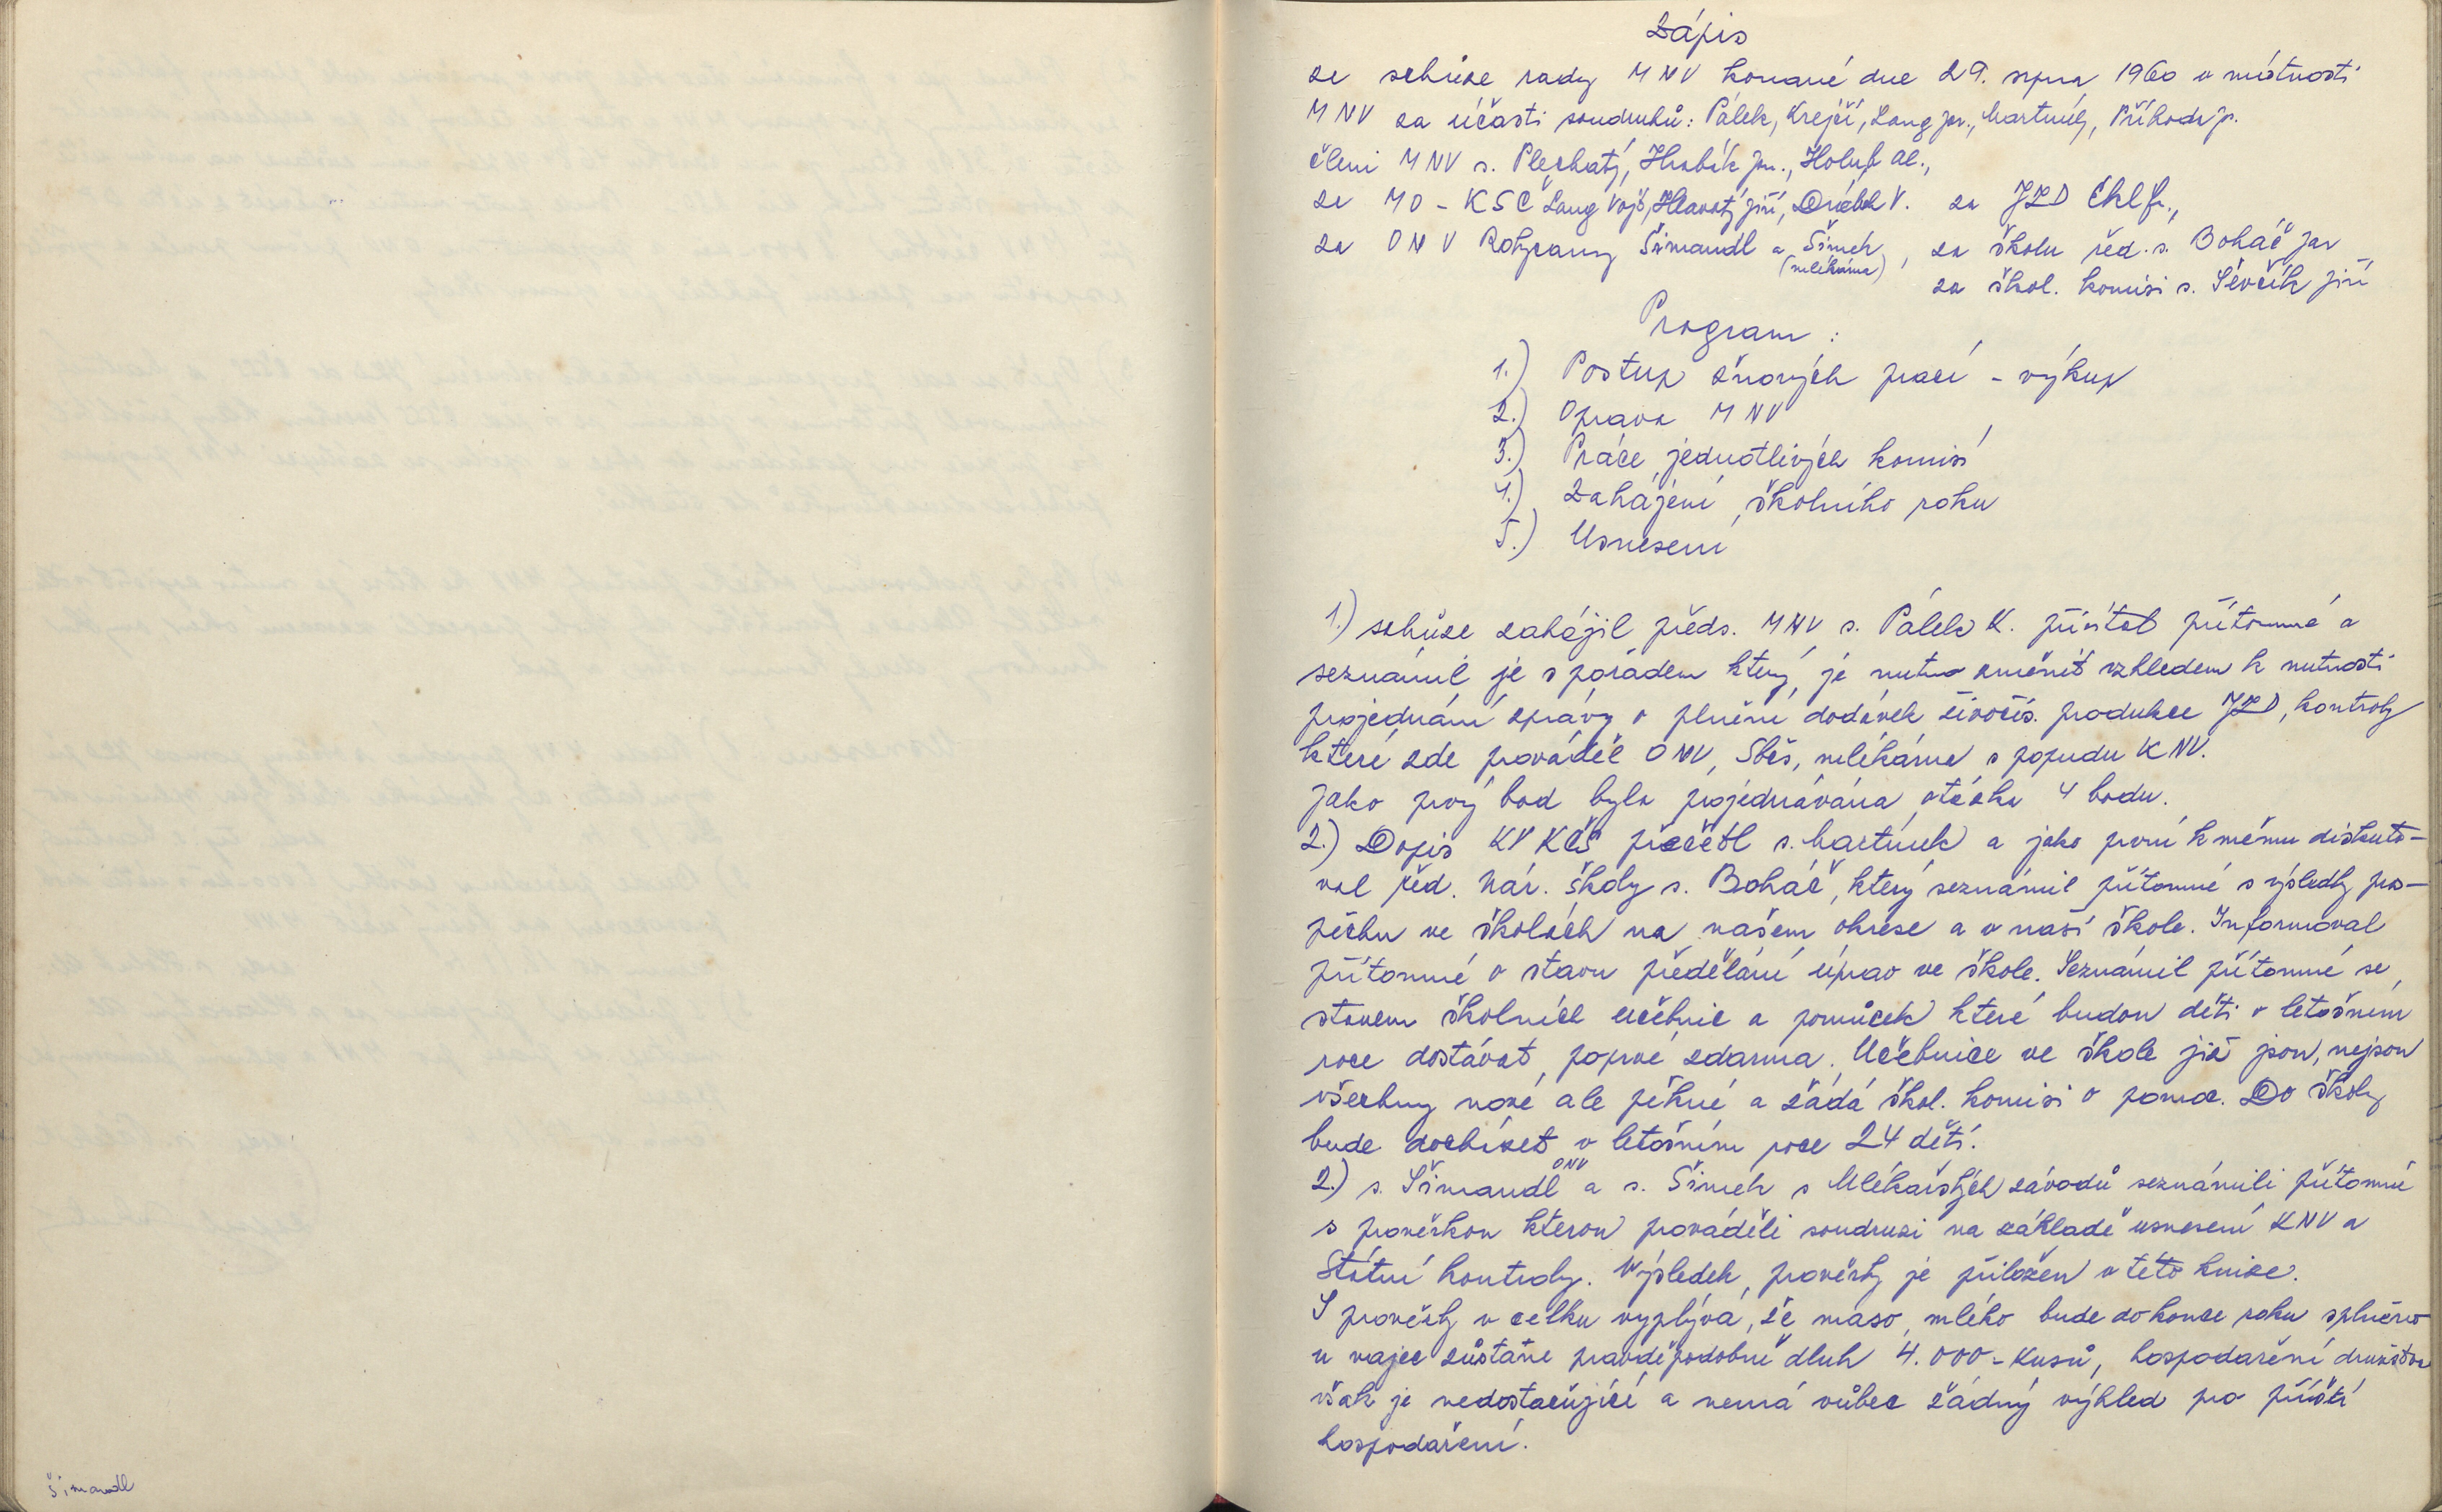 Šimandl
Zápis
ze schůze rady MNV konané dne 29. srpna 1960 v místnosti
MNV za účasti soudruhů: Pálek, Krejčí, Lang jar., Martínek, Příhoda j.
členi MNV s. Plechatý, Hrabák jar., Holub al.,
za MO - KSČ Lang Vojt, Hlavatý jiří, Drábek V. za JZD
za ONV Rokycany Šimandl a Šimek, za školu řed. s. Boháč jar
(mlékárna)
za škol. komisi s. Ševčík jiří
Program :
1.) Postup žňových prací - výkup
2.) Oprava MNV
3.) Práce jednotlivých komisí
4.) Zahájení školního roku
5.) Usnesení
1.) schůze zahájil předs. MNV s. Pálek K. přivítal přítomné a
seznámil je s pořadem který je nutno změnit vzhledem k nutnosti
projednání zprávy o plnění dodávek živočiš. produkce JZD, kontroly
které zde prováděl ONV, Sběš, mlékárna s popudu KNV.
jako prvý bod byla projednávána otázka 4 bodu.
2.) Dopis KV KSČ přečetl s. Martínek a jako první k němu diskuto-
val řed. Nár. školy s. Boháč, který seznámil přítomné s výsledky pro-
pěchu ve školách na našem okrese a v naší škole. Informoval
přítomné o stavu předělání úprav ve škole. Seznámil přítomné se
stavem školních učebnic a pomůcek které budou děti v letošním
roce dostávat poprvé zdarma. Učebnice ve škole již jsou, nejsou
všechny nové ale pěkné a žádá škol. komisi o pomoc. Do školy
bude docházet v letošním roce 24 dětí.
2.) s. Šimandl ONV a s. Šimek s Mlékařských závodů seznámili přítomné
s prověrkou kterou prováděli soudruzi na základě usnesení KNV a
Státní kontroly. Výsledek prověrky je přiložen v této knize.
S prověrky v celku vyplývá, že maso, mléko bude do konce roku splněno
u vajec zůstane pravděpodobně dluh 4.000 - kusů, hospodaření družstva
však je nedostačující a nemá vůbec žádný výhled pro příští
hospodaření.